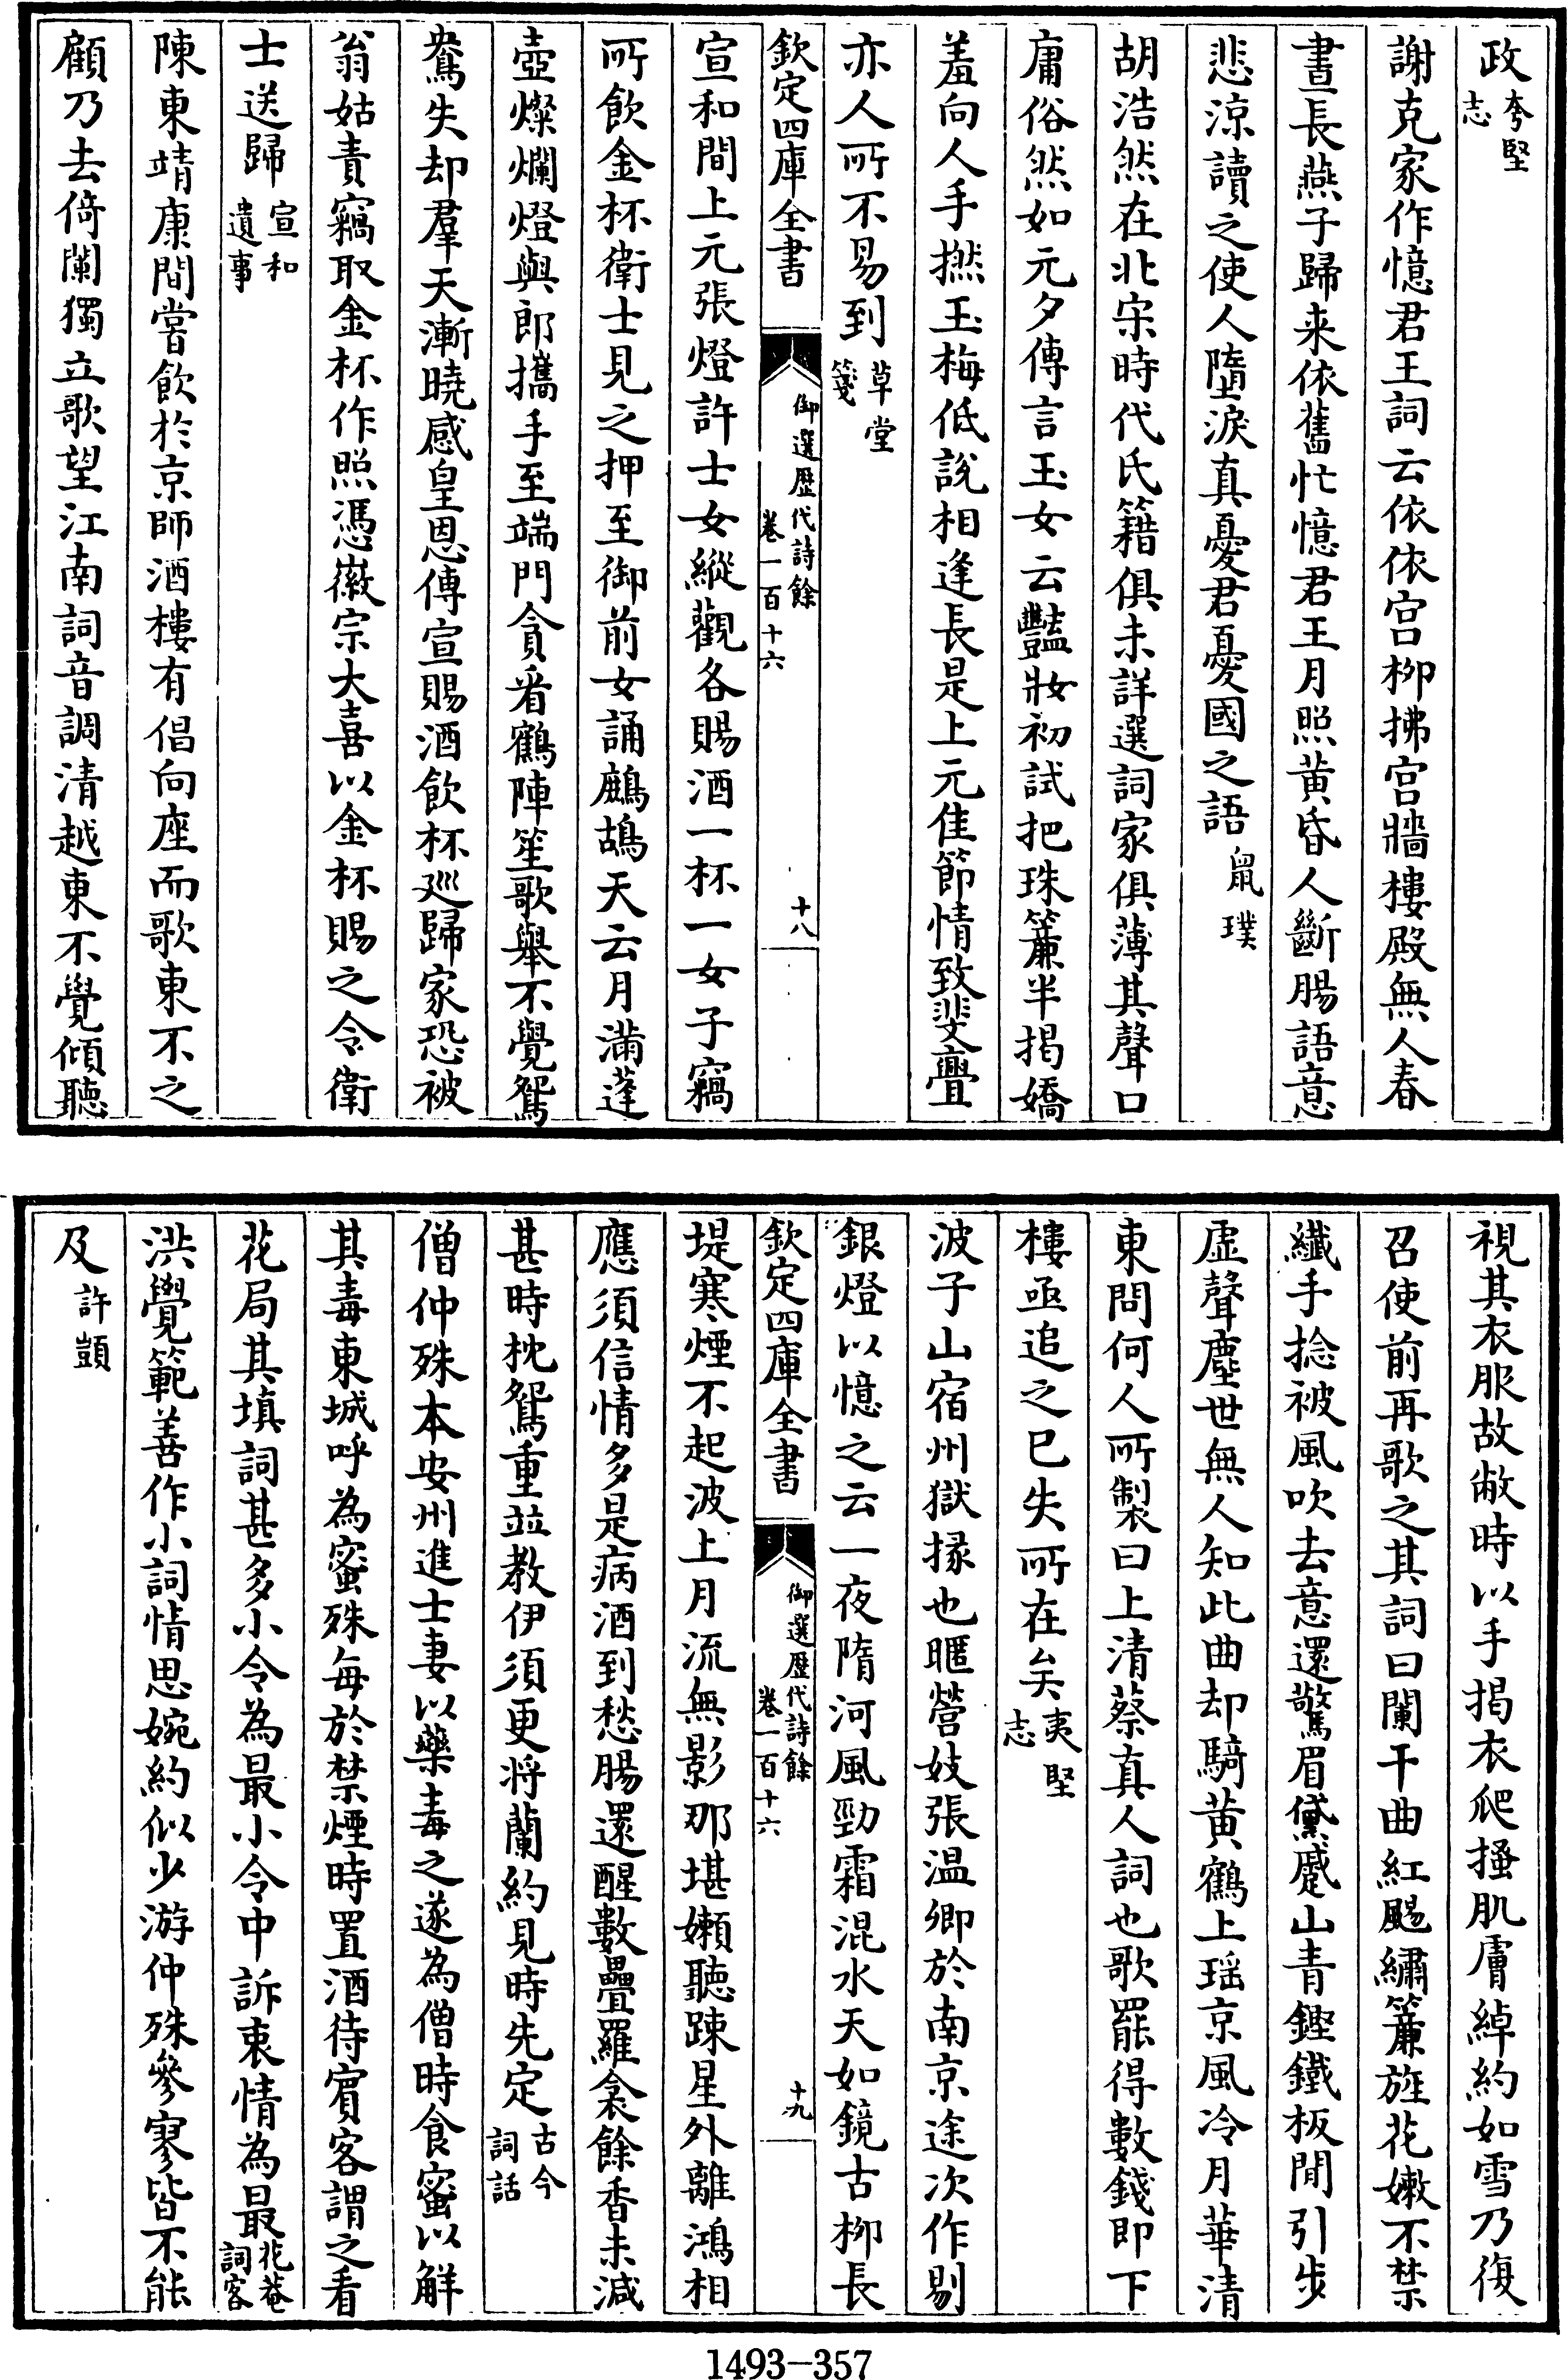 政夸堅志
謝克家作憶君王詞云依依宫柳拂宫牆樓殿無人春
晝長燕子歸来依舊忙憶君王月照黄昏人斷腸語意
悲涼讀之使人墮淚真憂君憂國之語鼠璞
胡浩然在北宋時代氏籍俱未詳選詞家俱薄其聲口
庸俗然如元夕傳言玉女云豔妝初試把珠簾半揭嬌
羞向人手撚玉梅低說相逢長是上元佳節情致斐亹
亦人所不易到草堂箋
欽定四庫全書
御選歷代詩餘
卷一百十六
十八
宣和間上元張燈許士女縱觀各賜酒一杯一女子竊
所飲金杯衛士見之押至御前女誦鷓鴣天云月滿蓬
壺燦爛燈與郎攜手至端門貪看鶴陣笙歌舉不覺鴛
鴦失却羣天漸曉感皇恩傳宣賜酒飲杯巡歸家恐被
翁姑責竊取金杯作照憑徽宗大喜以金杯賜之令衛
士送歸宣和遺事
陳東靖康間嘗飲於京師酒樓有倡向座而歌東不之
顧乃去倚闌獨立歌望江南詞音調清越東不覺傾聽
視其衣服故敝時以手揭衣爬搔肌膚綽約如雪乃復
召使前再歌之其詞曰闌干曲紅颺繡簾旌花嫩不禁
纖手捻被風吹去意還驚眉黛蹙山青鏗鐵板閒引步
虛聲塵世無人知此曲却騎黄鶴上瑶京風冷月華清
東問何人所製曰上清蔡真人詞也歌罷得數錢即下
樓亟追之已失所在矣夷堅志
波子山宿州獄掾也暱營妓張温卿於南京途次作剔
銀燈以憶之云一夜隋河風勁霜混水天如鏡古柳長
欽定四庫全書
御選歷代詩餘
卷一百十六
十九
堤寒煙不起波上月流無影那堪嬾聽踈星外離鴻相
應須信情多是病酒到愁腸還醒數疊羅衾餘香未減
甚時枕鴛重並教伊須更将蘭約見時先定古今詞話
僧仲殊本安州進士妻以藥毒之遂為僧時食蜜以解
其毒東城呼為蜜殊每於禁煙時置酒待賓客謂之看
花局其填詞甚多小令為最小令中訴衷情為最花菴詞客
洪覺範善作小詞情思婉約似少游仲殊參寥皆不能
及許顗
1493-357